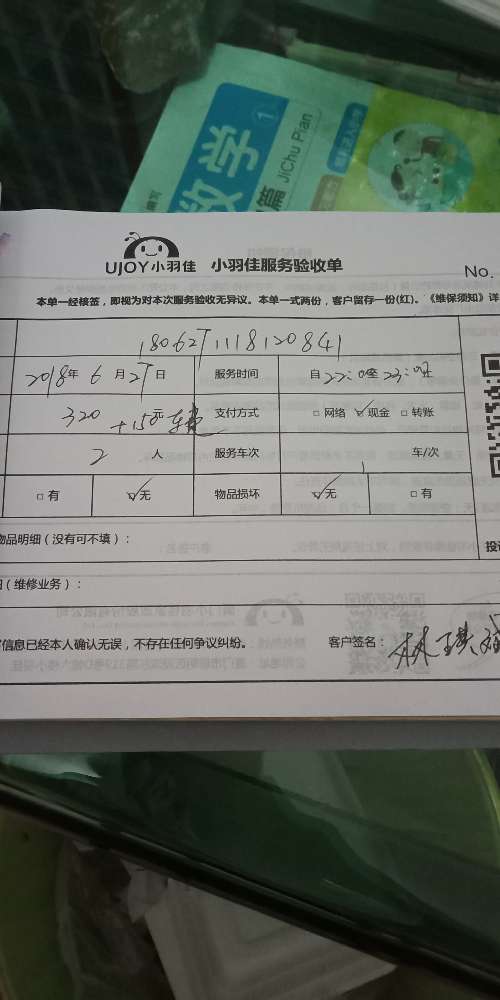 数学 1
JiChu Pian
篇
UJOY小羽佳 小羽佳服务验收单
No.
本单一经核签，即视为对本次服务验收无异议。本单一式两份，客户留存一份(红)。《维保须知》详
1806271118120841
2018年 6 月 27 日 服务时间 自 22:0至 23:0止
320 +150元车费 支付方式 □网络 ☑现金 □转账
2 人 服务车次 1 车/次
□有 ☑无 物品损坏 ☑无 □有
物品明细（没有可不填）： 投诉
（维修业务）：
信息已经本人确认无误，不存在任何争议纠纷。 客户签名：